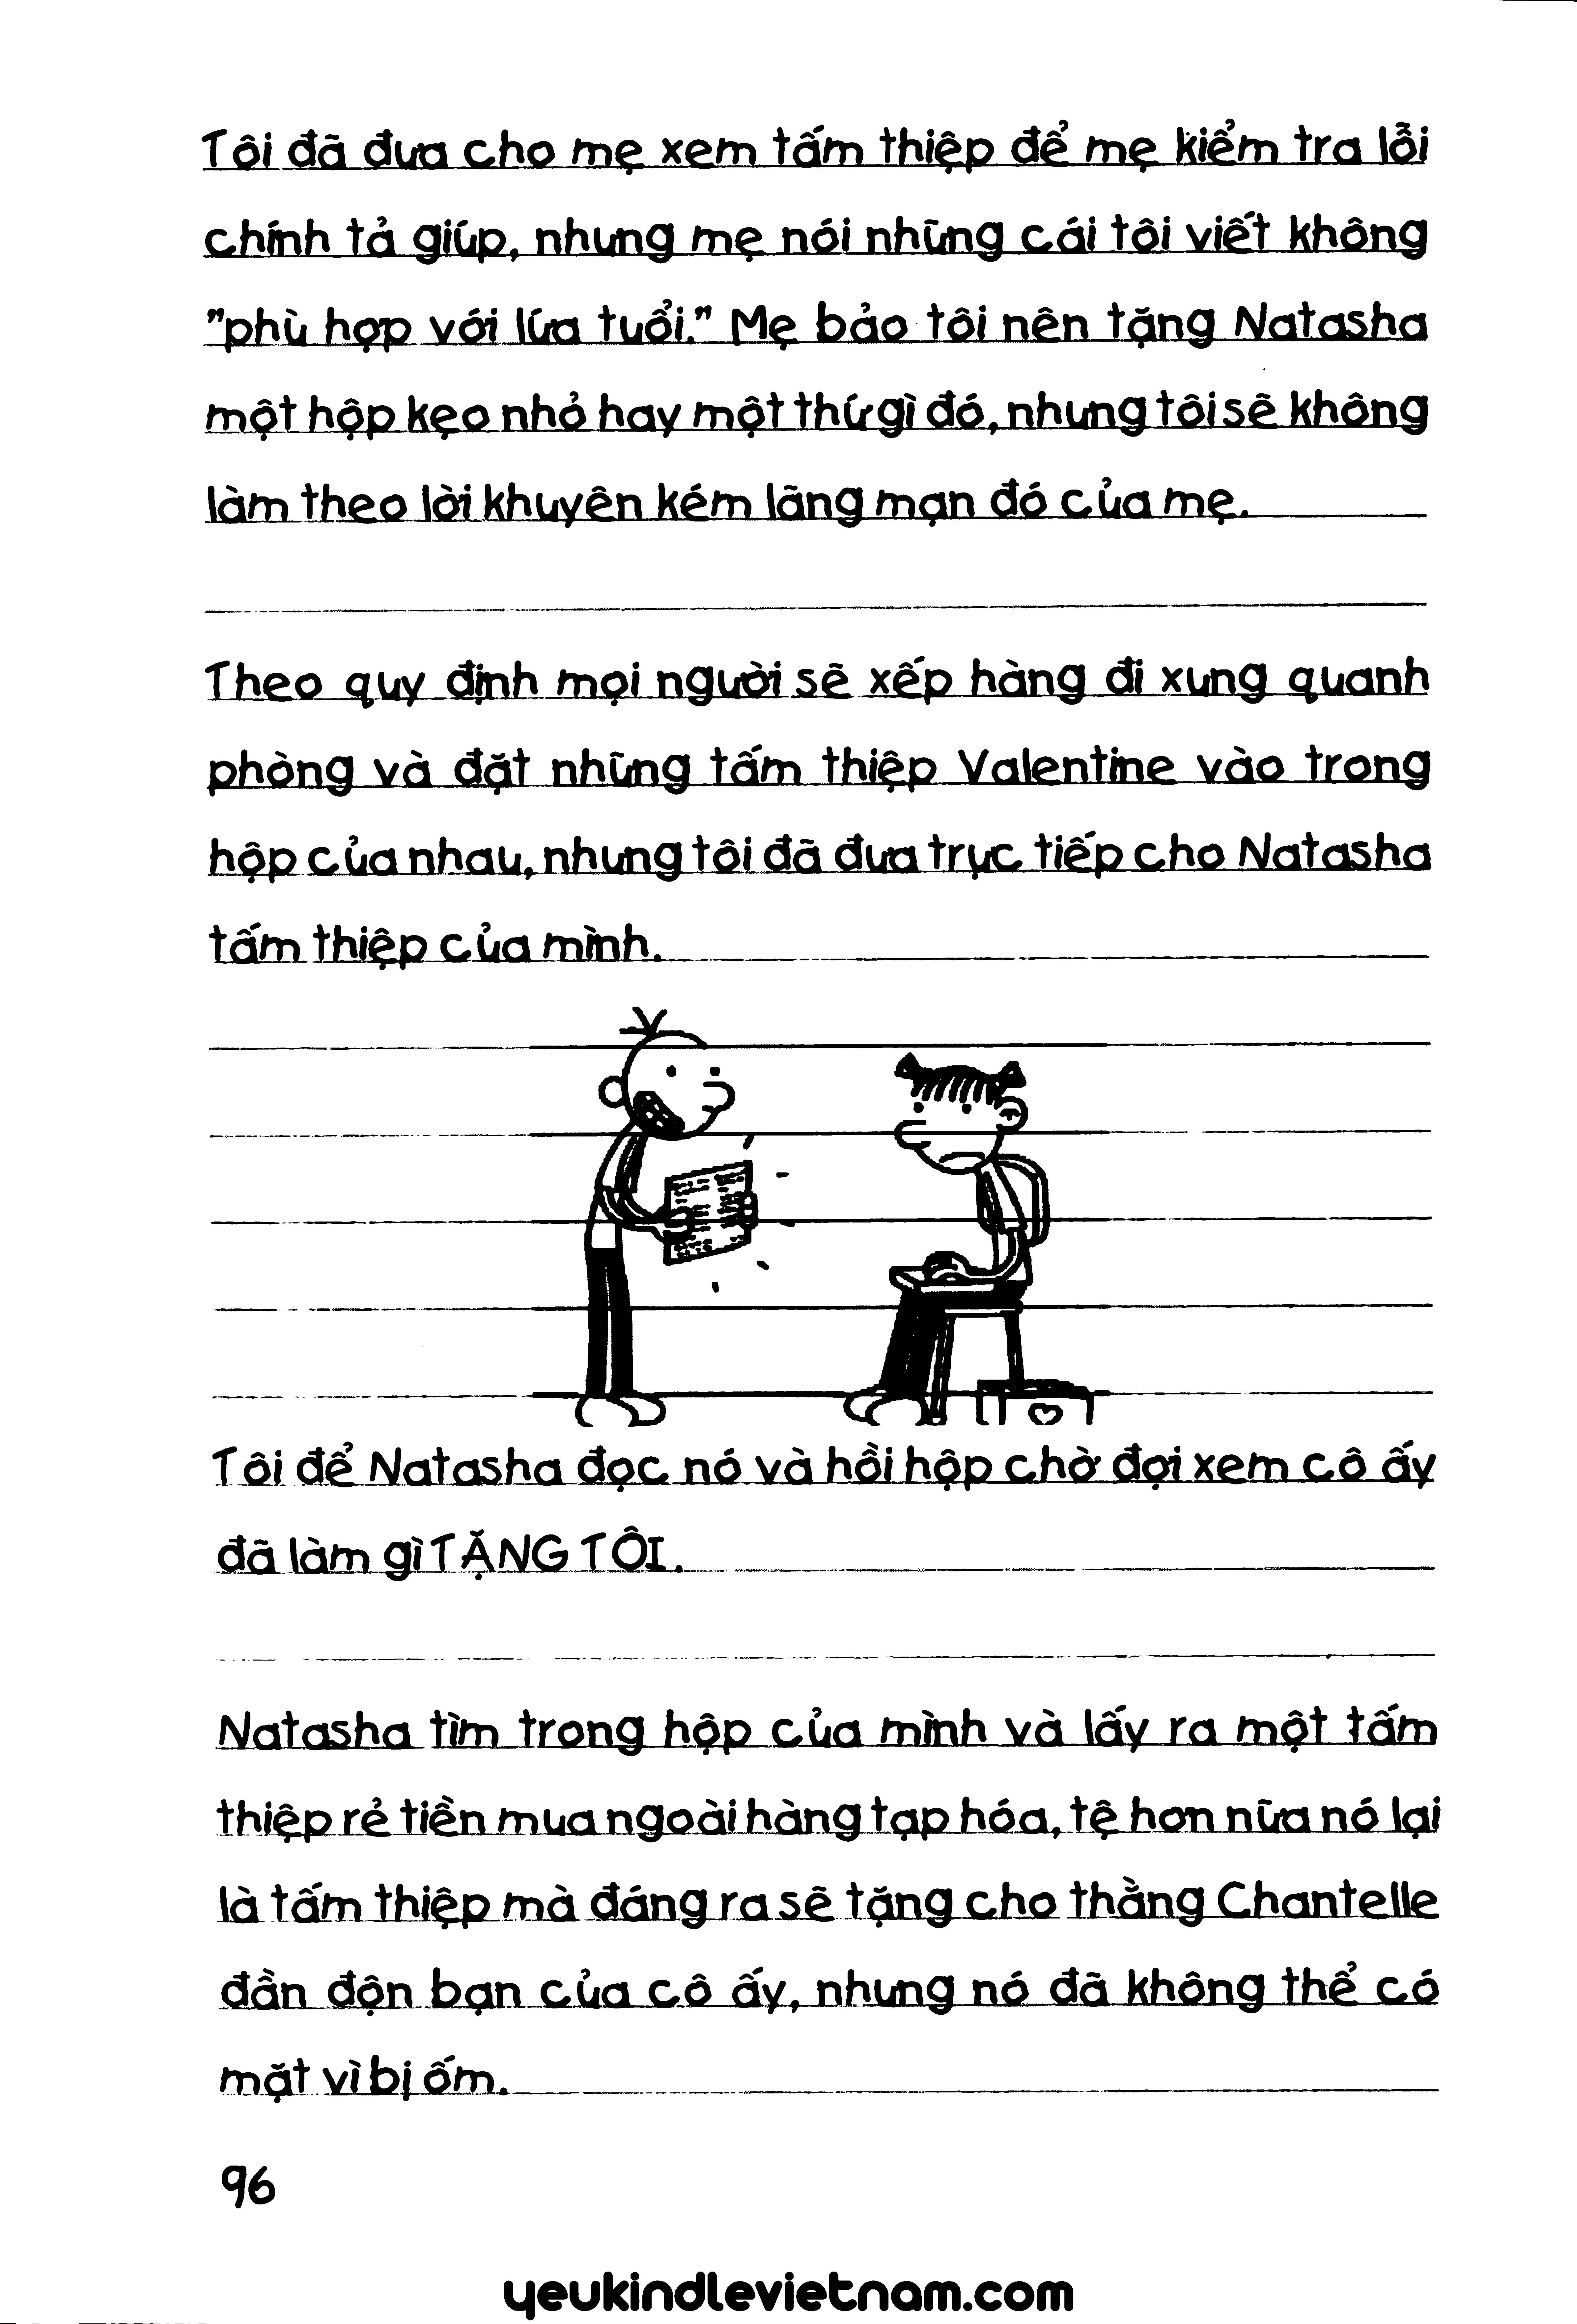 Tôi đã đưa cho mẹ xem tấm thiệp để mẹ kiểm tra lỗi
chính tả giúp, nhưng mẹ nói những cái tôi viết không
"phù hợp với lứa tuổi." Mẹ bảo tôi nên tặng Natasha
một hộp kẹo nhỏ hay một thứ gì đó, nhưng tôi sẽ không
làm theo lời khuyên kém lãng mạn đó của mẹ.
Theo quy định mọi người sẽ xếp hàng đi xung quanh
phòng và đặt những tấm thiệp Valentine vào trong
hộp của nhau, nhưng tôi đã đưa trực tiếp cho Natasha
tấm thiệp của mình.
Tôi để Natasha đọc nó và hồi hộp chờ đợi xem cô ấy
đã làm gì TẶNG TÔI.
Natasha tìm trong hộp của mình và lấy ra một tấm
thiệp rẻ tiền mua ngoài hàng tạp hóa, tệ hơn nữa nó lại
là tấm thiệp mà đáng ra sẽ tặng cho thằng Chantelle
đần độn bạn của cô ấy, nhưng nó đã không thể có
mặt vì bị ốm.
96
yeukindlevietnam.com